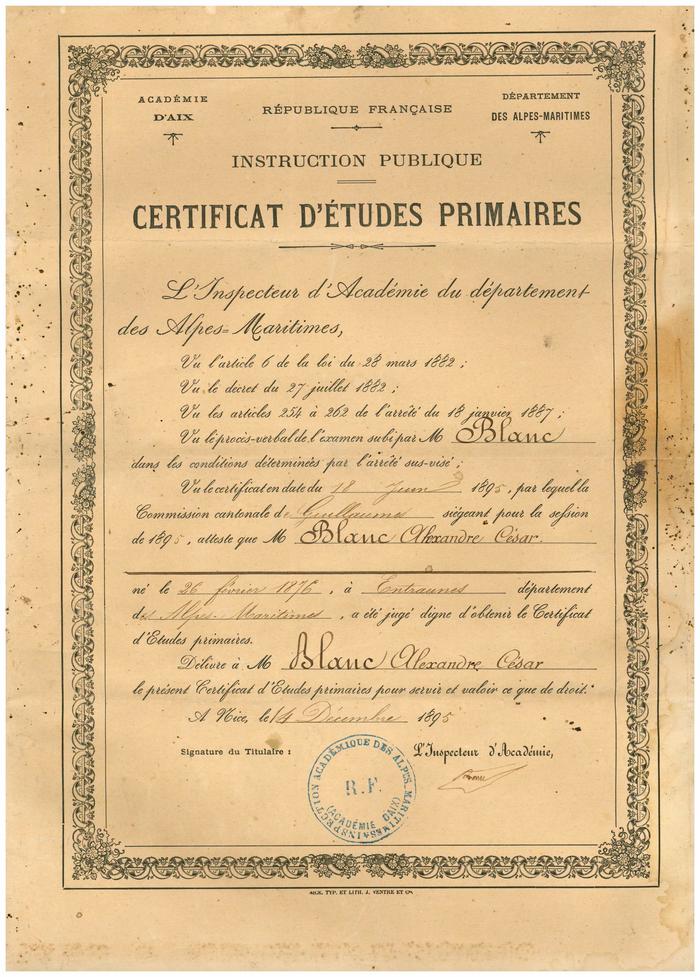 ACADÉMIE
D'AIX
RÉPUBLIQUE FRANÇAISE
DÉPARTEMENT
DES ALPES-MARITIMES
INSTRUCTION PUBLIQUE
CERTIFICAT D'ÉTUDES PRIMAIRES
L'Inspecteur d'Académie du département
des Alpes=Maritimes,
Vu l'article 6 de la loi du 28 mars 1882 ;
Vu le décret du 27 juillet 1882 ;
Vu les articles 254 à 262 de l'arrêté du 18 janvier 1887 ;
Vu le procès-verbal de l'examen subi par M Blanc
dans les conditions déterminées par l'arrêté sus-visé ;
Vu le certificat en date du 18 Juin 1895, par lequel la
Commission cantonale de Guillaumes siégeant pour la session
de 1895, atteste que M Blanc Alexandre César.
né le 26 février 1876, à Entraunes département
des Alpes-Maritimes, a été jugé digne d'obtenir le Certificat
d'Etudes primaires.
Délivré à M Blanc Alexandre César
le présent Certificat d'Etudes primaires pour servir et valoir ce que de droit.
A Nice, le 14 Décembre 1895
Signature du Titulaire :
L'Inspecteur d'Académie,
INSPECTION ACADÉMIQUE DES ALPES-MARITIMES
R.F.
(ACADÉMIE D'AIX)
NICE, TYP. ET LITH. J. VENTRE ET Cie